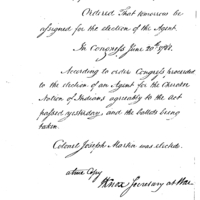 Ordered That tomorrow be
assigned for the election of the Agent.
In Congress June 20th 1788.
According to order Congress proceeded
to the election of an Agent for the Cherokee
Nation of Indians agreeably to the act
passed yesterday, and the ballots being
taken.
Colonel Joseph Martin was elected.
a true Copy
HKnox Secretary at War